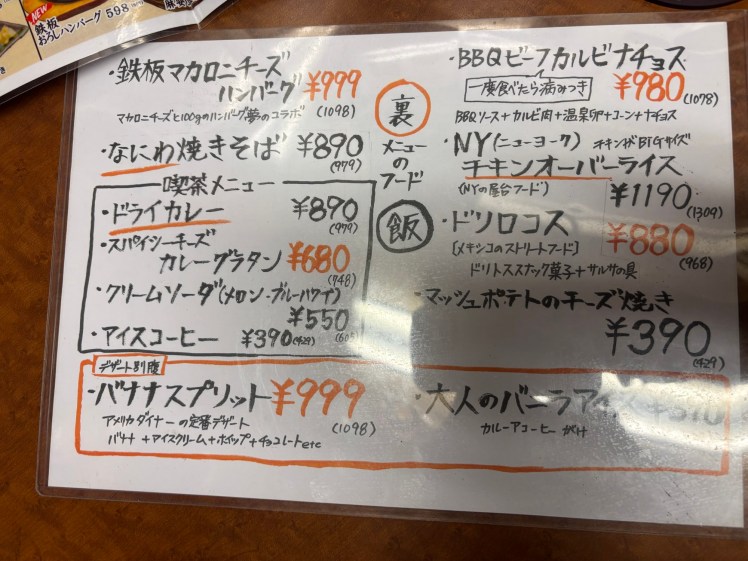 NEW
鉄板
おろしハンバーグ 598
・鉄板マカロニチーズ
ハンバーグ ¥999
(1098)
マカロニチーズと100gのハンバーグ夢のコラボ
・なにわ焼きそば ¥890
(979)
喫茶メニュー
・ドライカレー ¥890
(979)
・スパイシーチーズ
カレーグラタン ¥680
(748)
・クリームソーダ(メロン・ブルーハワイ)
¥550
(605)
・アイスコーヒー ¥390(429)
裏
メニューの
フード
飯
・BBQビーフカルビナチョス
一度食べたら病みつき ¥980
(1078)
BBQソース+カルビ肉+温泉卵+コーン+ナチョス
・NY(ニューヨーク) チキンがBIGサイズ
チキンオーバーライス
(NYの屋台フード) ¥1190
(1309)
・ドリロコス ¥880
[メキシコのストリートフード] (968)
ドリトススナック菓子+サルサの具
・マッシュポテトのチーズ焼き
¥390
(429)
デザート別腹
・バナナスプリット ¥999
(1098)
アメリカダイナーの定番デザート
バナナ+アイスクリーム+ホイップ+チョコレートetc
・大人のバニラアイス
カルーアコーヒーがけ